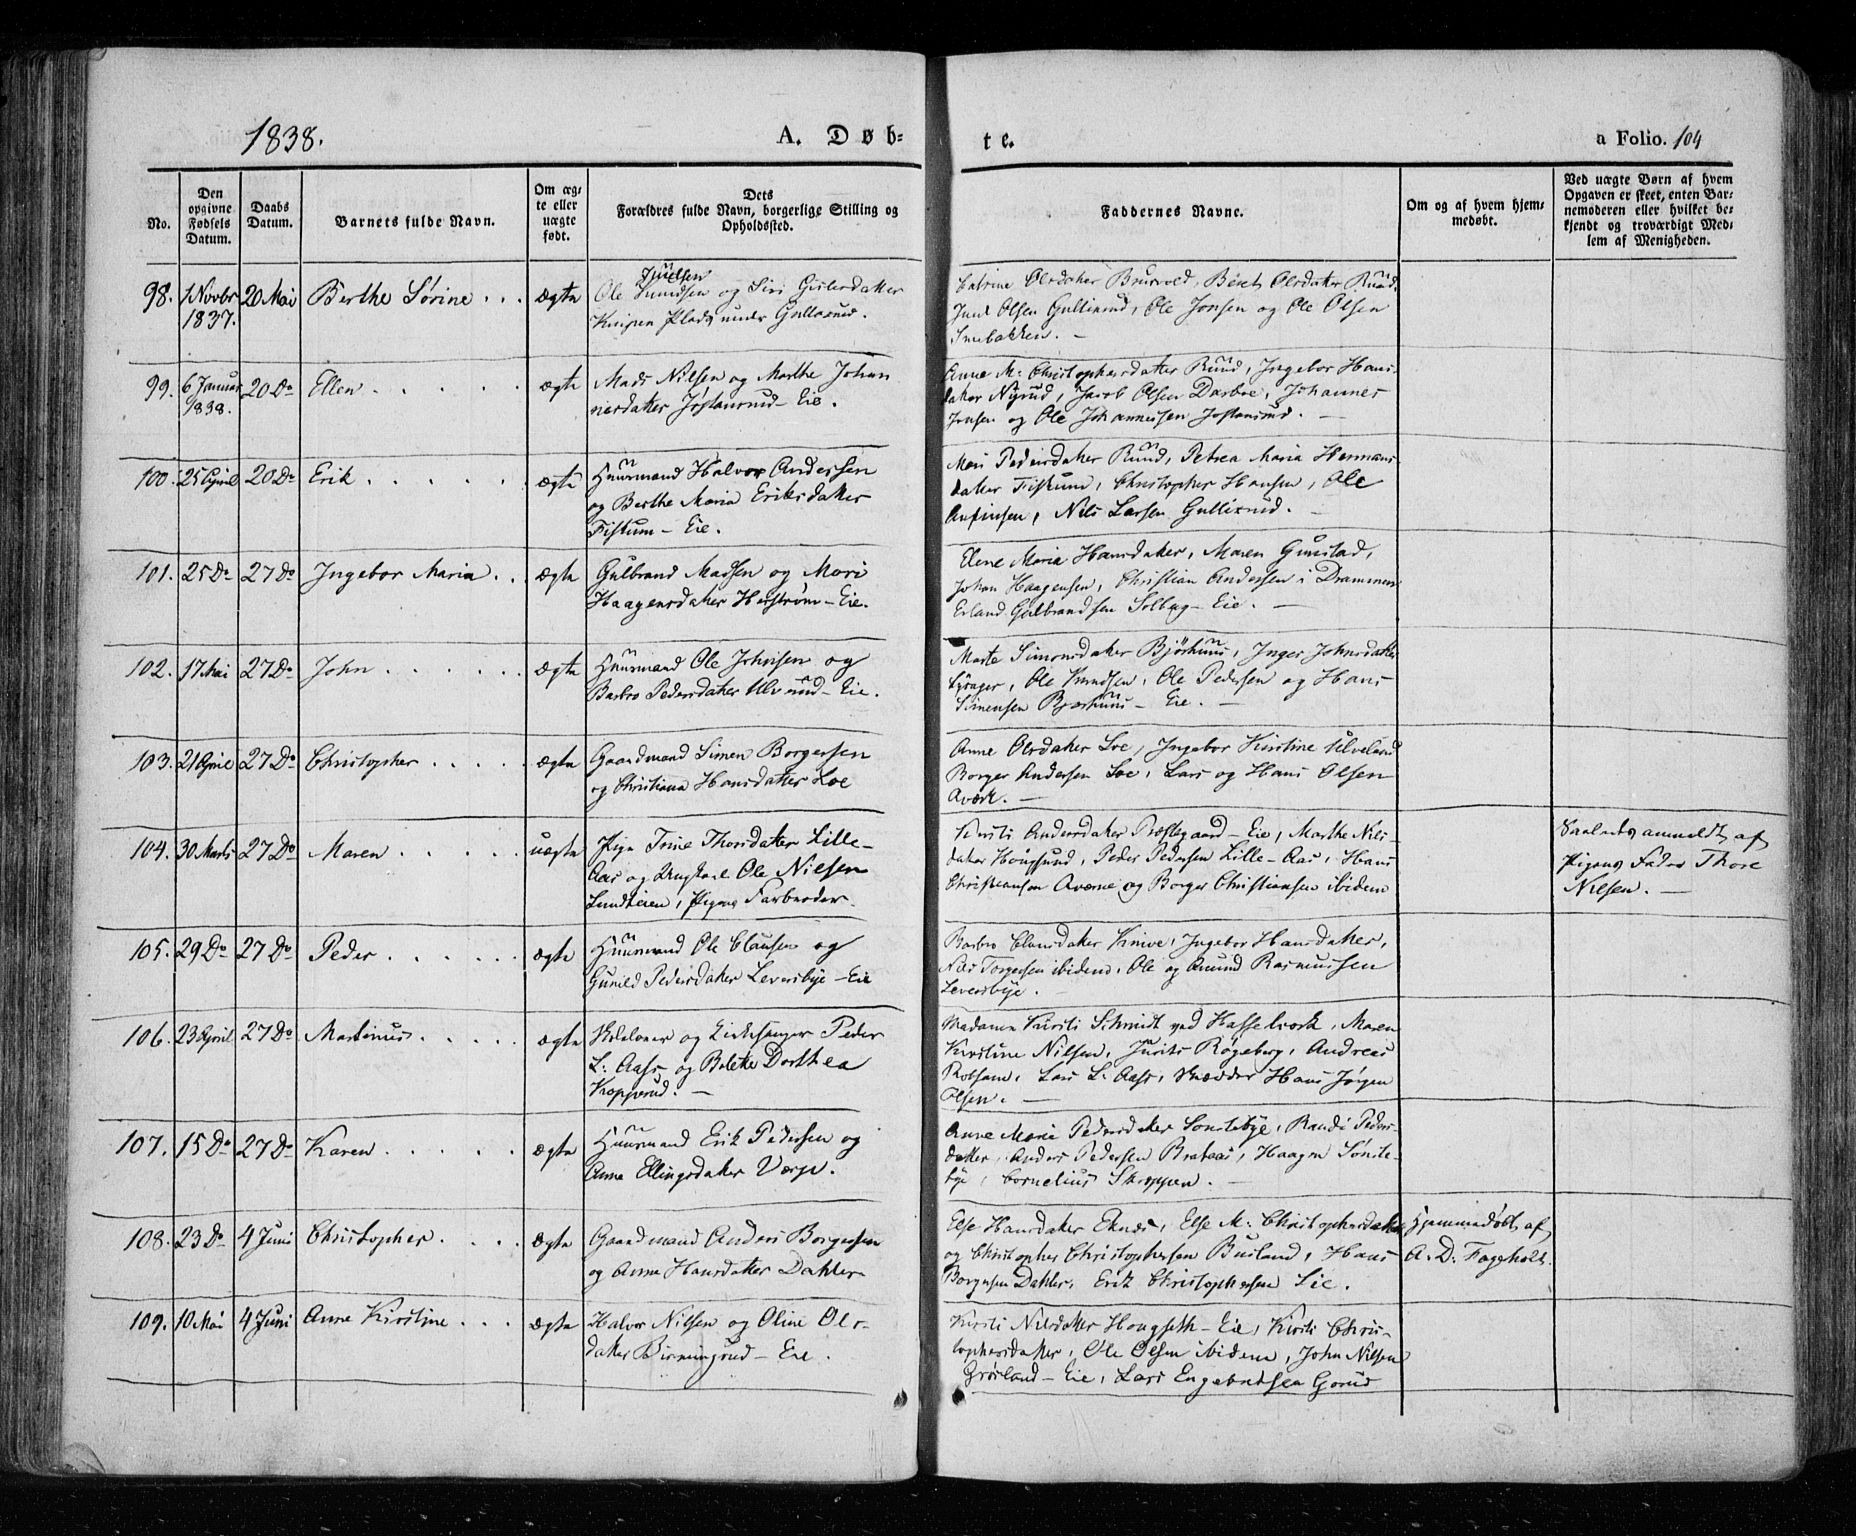 1838.
A. Døb-
te.
a Folio. 104
No.
Den opgivne Fødsels Datum.
Daabs Datum.
Barnets fulde Navn.
Om ægte eller uægte født.
Dets Forældres fulde Navn, borgerlige Stilling og Opholdssted.
Faddernes Navne.
Om og af hvem hjemmedøbt.
Ved uægte Børn af hvem Opgaven er skeet, enten Barnemoderen eller hvilket bekjendt og troværdigt Medlem af Menigheden.
98. 1 Novbr 1837. 20 Mai Berthe Sørine . . . ægte
Juulsen
Ole Knudsen og Siri Gislesdatter
Knipen Plads under Gullixrud.
Catrine Olsdatter Bruvold, Berit Olsdatter Ruud,
Juul Olsen Gullixrud, Ole Jonsen og Ole Olsen
Smebakken. -
99. 6 Januar 1838. 20 Do Ellen . . . . . ægte
Mads Nilsen og Marthe Johan
nesdatter Jøstansrud - Eie.
Anne M: Christophersdatter Ruud, Ingebor Hans-
datter Nyrud, Jacob Olsen Darboe, Johannes
Jonsen og Ole Johannesen Jostansrud. -
100. 25 April 20 Do Erik . . . . . ægte
Huusmand Halvor Andersen
og Berthe Maria Eriksdatter
Fiskum - Eie.
Mari Pedersdatter Ruud, Petrea Maria Hermans
datter Fiskum, Christopher Hansen, Ole
Anfinsen, Nils Larsen Gullixrud. -
101. 25 Do 27 Do Ingebor Maria . . ægte
Gulbrand Madsen og Mari
Haagensdatter Hæstrøm - Eie.
Elene Maria Hansdatter, Maren Gunstad,
Johan Haagensen, Christian Andersen i Drammen
Erland Gulbrandsen Solbag - Eie. -
102. 17 Mai 27 Do John . . . . . ægte
Huusmand Ole Johnsen og
Barbro Pedersdatter Ulvrud - Eie.
Marte Simonsdatter Bjørkuus, Inger Johnsdatter
Ole Knudsen, Ole Pedersen og Hans
Simensen Bjørkuus - Eie. -
103. 21 April 27 Do Christopher . . . . . ægte
Gaardmand Simen Borgersen
og Christiana Hansdatter Loe
Anne Olsdatter Loe, Ingebor Kirstine Ulveland
Borger Andersen Loe, Lars og Hans Olsen
Aværk. -
104. 30 Marts 27 Do Maren . . . . . uægte
Pige Trine Thorsdatter Lille-
Aas og Ungkarl Ole Nielsen
Lundteien, Pigens Farbroder.
Kirsti Andersdatter Præstegaard - Eie, Marthe Nils
datter Hougsund, Peder Pedersen Lille-Aas, Hans
Christiansen Averne og Borger Christiansen ibidem
Saaledes anmeldt af
Pigens Fader Thore
Nilsen. -
105. 29 Do 27 Do Peder . . . . . ægte
Huusmand Ole Clausen og
Gunild Pedersdatter Leversbye - Eie
Barbro Clausdatter Knive, Ingebor Hansdatter,
Nils Torgersen ibidem, Ole og Amund Rasmussen
Leversbye.
106. 23 April 27 Do Martinus . . . . . ægte
Skolelærer og Kirkesanger Peder
L: Aass og Beleke Dorthea
Kopperud. -
Madame Kirsti Schmidt ved Hasselverk, Maren
Kirstine Nilsen, Jurits Røgeberg, Andreas
Robsam, Lars L: Aass, Skrædder Hans Jørgen
Olsen. -
107. 15 Do 27 Do Karen . . . . . ægte
Huusmand Erik Pedersen og
Anne Ellingsdatter Værp.
Anne Marie Pedersdatter Sonstebye, Randi Peders-
datter, Anders Pedersen Brataas, Haagen Sønste-
bye, Cornelius Skroppen. -
108. 23 Do 4 Juni Christopher . . . . ægte
Gaardmand Anders Borgersen
og Anne Hansdatter Dahler
Else Hansdatter Eknes, Else M: Christophersdatter
og Christopher Christophersen Busland, Hans
Borgersen Dahler, Erik Christophersen Lie.
Hjemmedøbt af
A. D. Fageholt.
109. 10 Mai 4 Juni Anne Kirstine . . . ægte
Halvor Nilsen og Oline Ols-
datter Birmingrud - Eie.
Kirsti Nilsdatter Hougseth - Eie, Kirsti Chris-
tophersdatter, Ole Olsen ibidem, John Nilsen
Grøsland - Eie, Lars Engebretsen Gorud